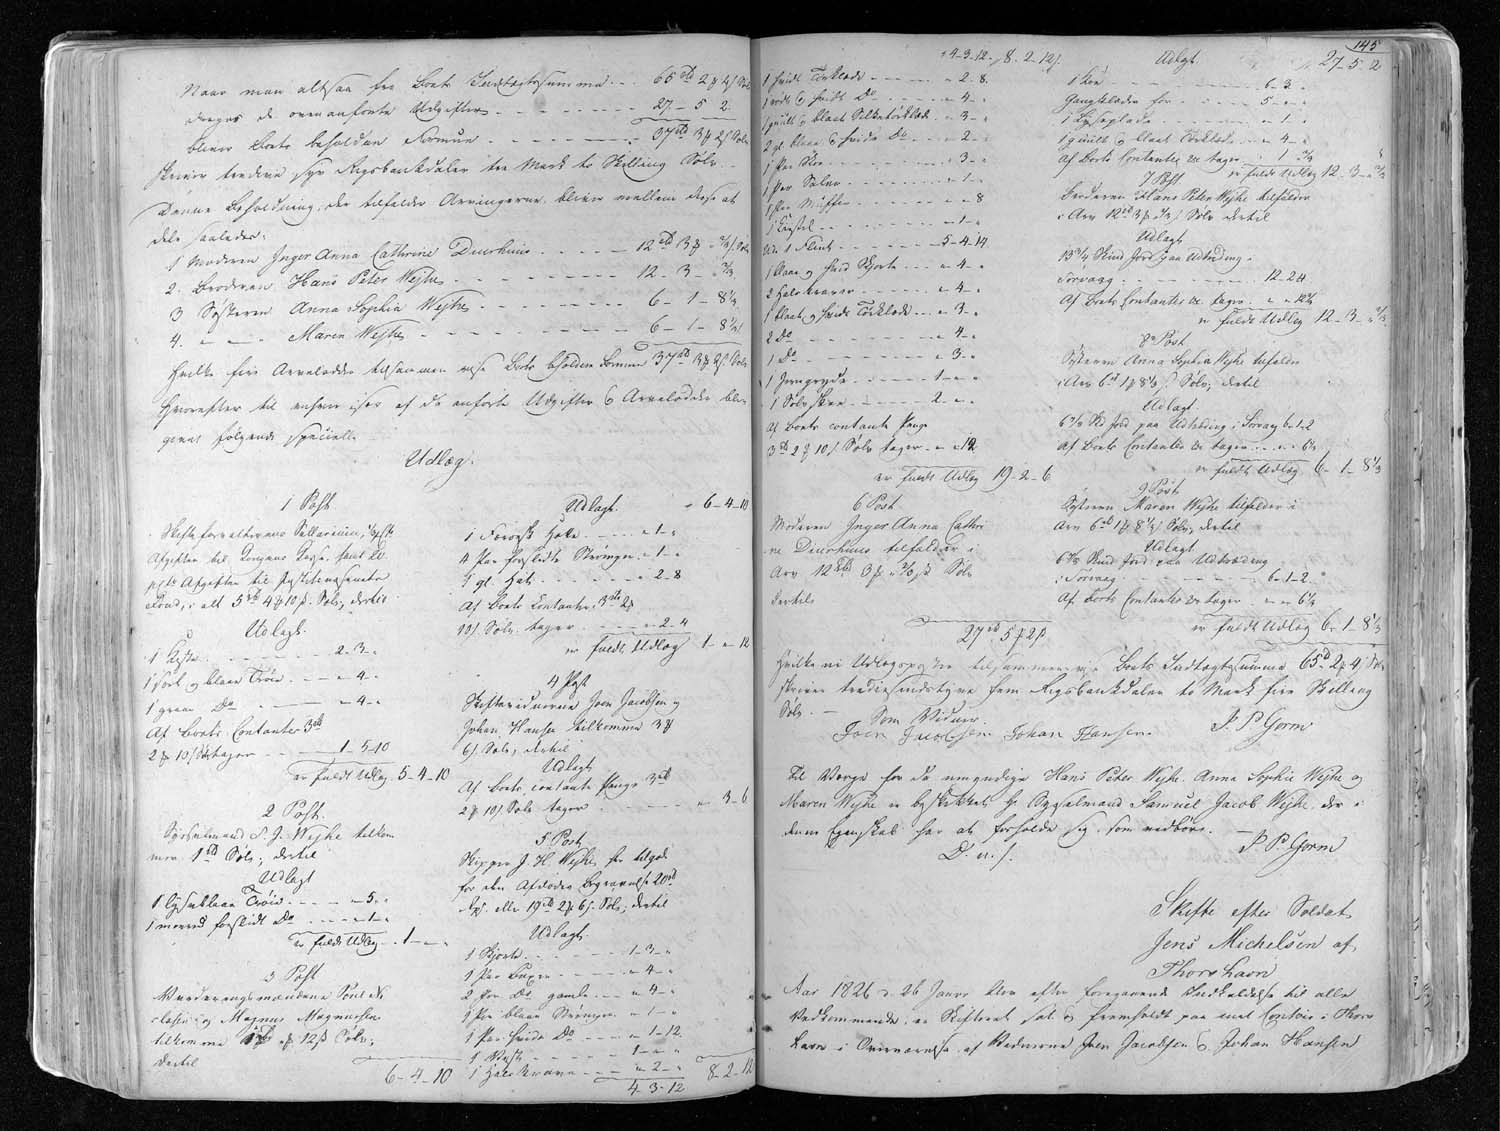 Naar man altsaa fra Boets Indtægtssumma 65 rd 2 4 s Sølv
drages de ovenanførte Udgifter 27 - 5 2
bliver Boets beholdne Formue 37 rd 3 2 s Sølv
skriver tredive syv Rigsbankdaler tre Mark to Skilling Sølv.
Denne Beholdning, der tilfalder Arvingerne, bliver mellem disse at
dele saaledes:
1 Moderen Inger Anna Cathrine Duurhuus 12 rd 3
2. Broderen Hans Peter Wejhe 12 - 3
3 Søsteren Anna Sophia Wejhe 6 - 1 - 8 1/3
4. Maren Wejhe 6 - 1 - 8 1/3
Hvilke fire Arvelodder tilsammen Boets beholden Formue 37 rd 3 2 s Sølv
Hvorefter til enhver især af de anførte Udgifter & Arvelodder bliver
giort følgende specielle
Udlæg.
1 Post.
Skifteforvalterens Sallarium,
Afgiften til Kongens Casse samt
Afgiften til Justitsens
Fond, i alt 5 rd 4 10 s Sølv, dertil
Udlagt
1 Kiste 2 - 3 -
1 sort og blaae Trøie - 4 -
1 grøn Do - 4 -
Af Boets Contanter 3 rd
2 10 s Sølv tages 1 - 5 - 10
er fuldt Udlæg 5 - 4 - 10
2 Post.
Sysselmand S. J. Wejhe tilkom
mer 1 rd Sølv, dertil
Udlagt
1 lyseblaae Trøie - 5 -
1 forslidt Do - 1 -
er fuldt Udlæg 1 - -
3 Post
Vurderingsmændene Poul
og Magnus Magnussen
tilkomme 12 s Sølv,
dertil
6 - 4 - 10
Udlagt. 6 - 4 - 10
1 Færøsk Hatte - 1 -
4 Par forslidte Strømper - 1 -
1 gl. Hat - 2 - 8
Af Boets Contanter 3 rd 2
10 s. Sølv tages - 2 - 4
er fuldt Udlæg 1 - 12
4 Post
Skiftevidnerne Joen Jacobsen og
Johan Hansen tilkomme 3
6 s. Sølv, dertil
Udlagt
Af Boets contante Penge 3 rd
2 10 s. Sølv tages - 3 - 6
5 Post
Skipper J. H. Wejhe har tilgode
for den Afdødes Begravelse 20 rd
eller 19 rd 2 6 s. Sølv, dertil
Udlagt
1 Skjorte 1 - 3 -
1 Par Buxer - 4 -
2 Par Do gamle - 4 -
1 Par blaae Strømper - 1 -
1 Par hvide Do - 1 - 12
1 Vest 1 - -
1 Halskrave - 2 -
4 3 - 12 8 - 2 - 12
145
4 - 3 - 12 8 - 2 - 12
1 hvidt Tørklæde - 2 - 8
1 rødt & hvidt Do - 4 -
1 gult & blaat Silketørklæde - 3 -
2 gl. blaae & hvide Do - 2 -
1 Par Skoe - 3 -
1 Par Saaler
1 Par Muffer - 8
1 - 1 -
5 - 4 - 14
1 blaae og hvid Skjorte - 4 -
2 Halskraver - 4 -
1 blaat og hvidt Tørklæde - 3 -
2 Do - 4 -
1 Do - 3 -
1 Jerngryde 1 - -
1 Sølvskee 2 - -
Af Boets contante Penge
3 rd 2 10 s Sølv tages - 12
er fuldt Udlæg 19 - 2 - 6
6 Post
Moderen Inger Anna Cathri
ne Duurhuus tilfalder i
Arv 12 rbd 3 Sølv
dertil
27 rd 5 2
Udlagt. 27 - 5 2
1 Koe 6 - 3 -
Gangklæder for 5 - -
1 - 1 -
1 gult & blaat Tørklæde - 4 -
Af Boets Contanter tages 1
er fuldt Udlæg 12 - 3 -
7 Post
Broderen Hans Peter Wejhe tilfalder
i Arv 12 rd 3 Sølv dertil
Udlagt
Jord paa Udtrædning
Sørvaag 12 - 24
Af Boets Contanter tages
er fuldt Udlæg 12 - 3 -
8 Post
Søsteren Anna Sophia Wejhe tilfalder
i Arv 6 rd 1 8 1/3 s Sølv, dertil
Udlagt
Jord paa Udtrædning i Sørvaag 6 - 1 - 2
Af Boets Contanter tages - - 6 1/3
er fuldt Udlæg 6 - 1 - 8 1/3
9 Post
Søsteren Maren Wejhe tilfalder i
Arv 6 rd 1 8 1/3 s Sølv, dertil
Udlagt
Jord paa Udtrædning
i Sørvaag 6 - 1 - 2
Af Boets Contanter tages - - 6 1/3
er fuldt Udlæg 6 - 1 - 8 1/3
Hvilke ni Udlægsposter tilsammen Boets Indtægtssumma 65 rd 2 4 s Sølv
skriver tredsindstyve fem Rigsbankdaler to Mark fire Skilling
Sølv. — Som Vidner. P. P. Gorm
Joen Jacobsen Johan Hansen.
Til Værge for de umyndige Hans Peter Wejhe, Anna Sophie Wejhe og
Maren Wejhe er beskikket Hr Sysselmand Samuel Jacob Wejhe, der i
denne Egenskab har at forholde sig som vedbør. —
D. u. s. P. P. Gorm
Skifte efter Soldat
Jens Michelsen af
Thorshavn
Aar 1826 d. 26 Januar blev efter foregaaende Indkaldelse til alle
Vedkommende, en Skifteret sat og fremholdt paa mit Contoir i Thors
havn i Overværelse af Vidnerne Joen Jacobsen & Johan Hansen